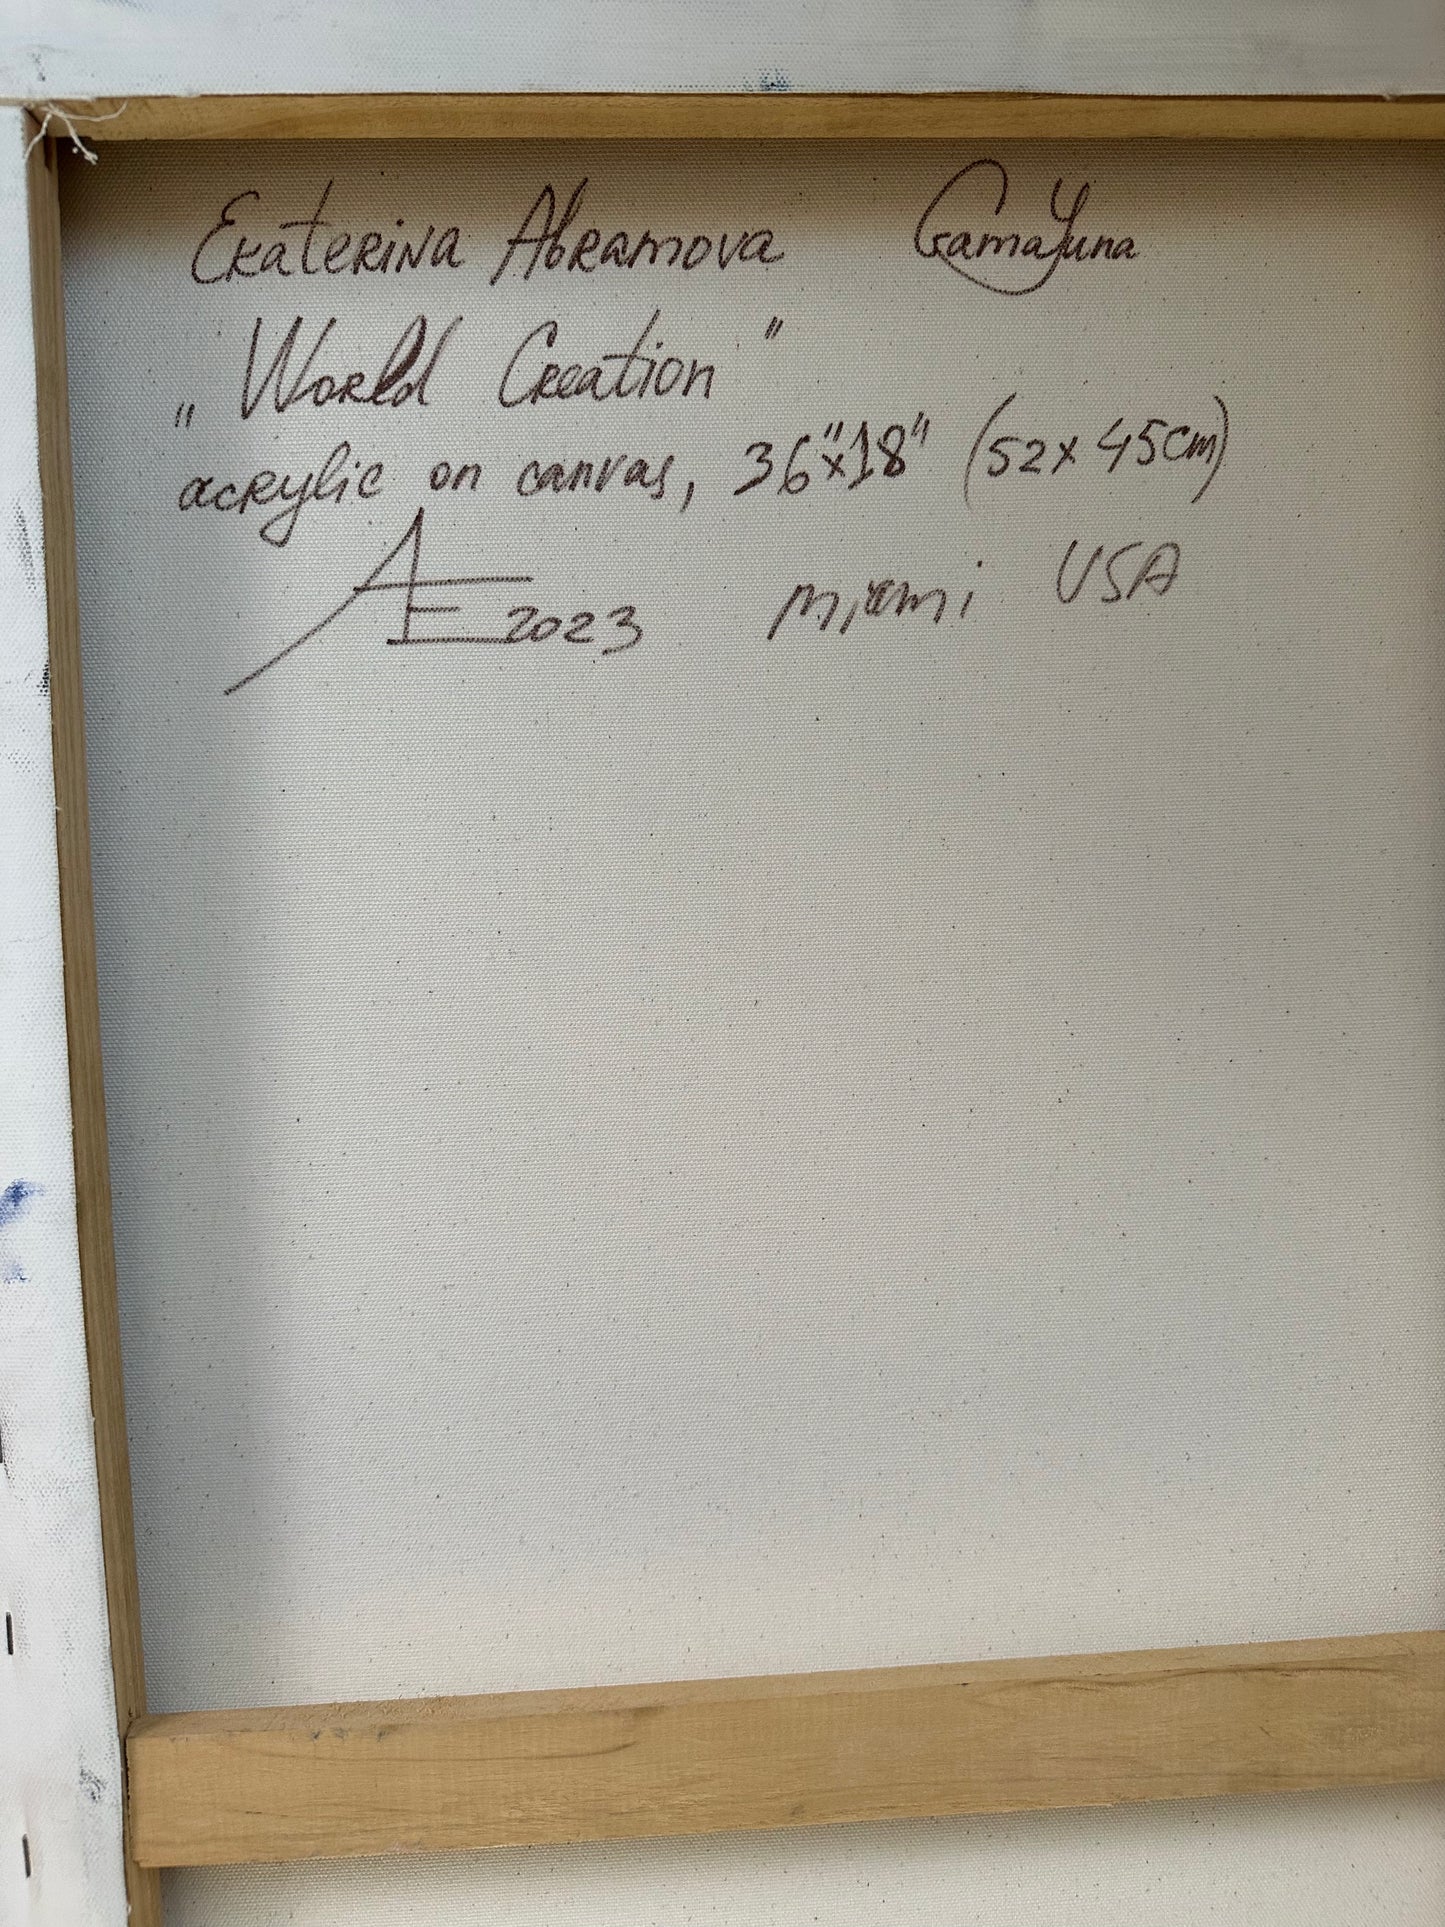 Ekaterina Abramova GamaYuna
„World Creation"
acrylic on canvas, 36"x18" (52x45cm)
AE 2023 Miami USA